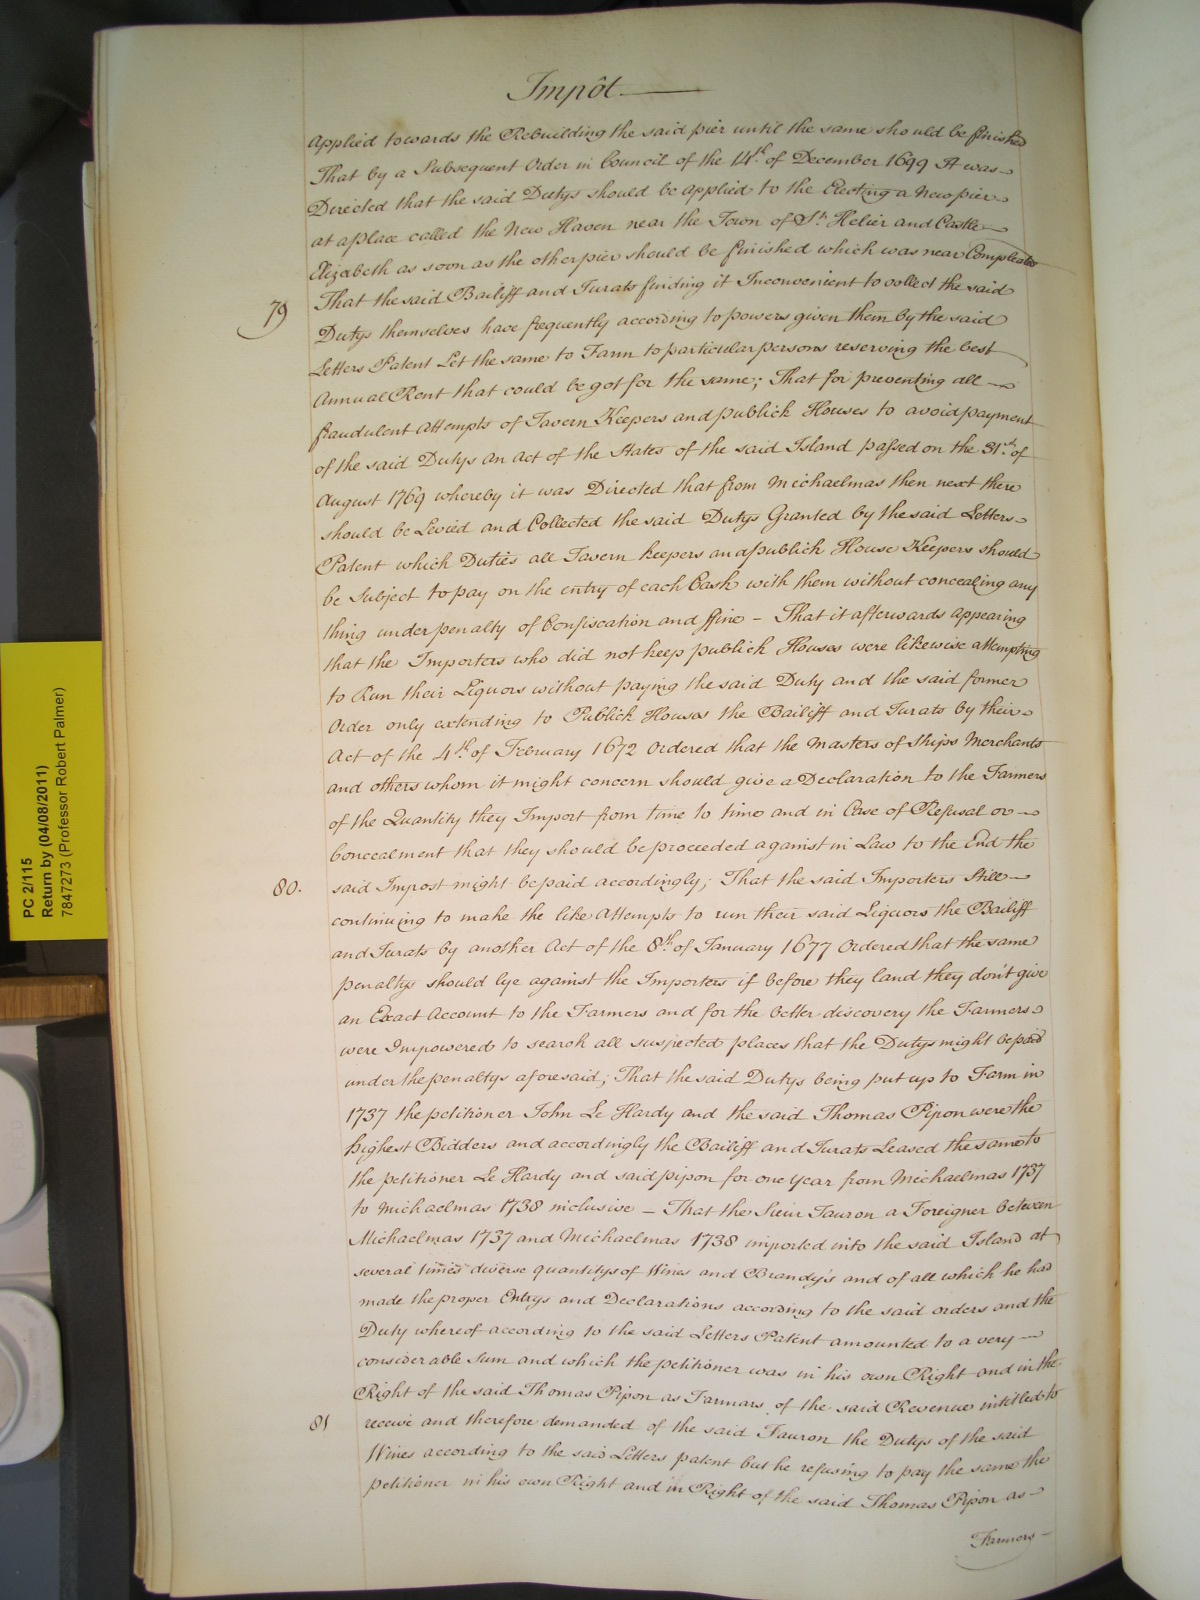 Impôt
Applied towards the Rebuilding the said pier until the same should be finished
That by a Subsequent Order in Council of the 14th. of December 1699 It was
Directed that the said Dutys should be applied to the Erecting a New pier
at a place called the New Haven near the Town of St. Helier and Castle
Elizabeth as soon as the other pier should be finished which was near Compleated
79 That the said Bailiff and Jurats finding it Inconvenient to collect the said
Dutys themselves have frequently according to powers given them by the said
Letters Patent Let the same to Farm to particular persons reserving the best
Annual Rent that could be got for the same; That for preventing all
fraudulent attempts of Tavern Keepers and publick Houses to avoid payment
of the said Dutys an Act of the States of the said Island passed on the 31st. of
August 1769 whereby it was Directed that from Michaelmas then next there
should be Levied and Collected the said Dutys Granted by the said Letters
Patent which Duties all Tavern keepers and publick House Keepers should
be Subject to pay on the entry of each Cask with them without concealing any
thing under penalty of Confiscation and ffine - That it afterwards appearing
that the Importers who did not keep publick Houses were likewise attempting
to Run their Liquors without paying the said Duty and the said former
Order only extending to Publick Houses the Bailiff and Jurats by their
Act of the 4th. of February 1672 Ordered that the Masters of Ships Merchants
and others whom it might concern should give a Declaration to the Farmers
of the Quantity they Import from time to time and in Case of Refusal or
Concealment that they should be proceeded against in Law to the End the
80. said Impost might be paid accordingly; That the said Importers Still
continuing to make the like Attempts to run their said Liquors the Bailiff
and Jurats by another Act of the 8th. of January 1677 Ordered that the same
penaltys should lye against the Importers if before they land they don't give
an Exact Account to the Farmers and for the better discovery the Farmers
were Impowered to search all suspected places that the Dutys might be paid
under the penaltys aforesaid; That the said Dutys being put up to Farm in
1737 the petitioner John Le Hardy and the said Thomas Pipon were the
highest Bidders and accordingly the Bailiff and Jurats Leased the same to
the petitioner Le Hardy and said pipon for one year from Michaelmas 1737
to Michaelmas 1738 inclusive - That the Sieur Fauron a Foreigner between
Michaelmas 1737 and Michaelmas 1738 imported into the said Island at
several times diverse quantitys of Wines and Brandy's and of all which he had
made the proper Entrys and Declarations according to the said orders and the
Duty whereof according to the said Letters Patent amounted to a very
considerable Sum and which the petitioner was in his own Right and in the
Right of the said Thomas Pipon as Farmars of the said Revenue intitled to
81 receive and therefore demanded of the said Fauron the Dutys of the said
Wines according to the said Letters patent but he refusing to pay the same the
petitioner in his own Right and in Right of the said Thomas Pipon as
Farmers
PC 2/115
Return by (04/08/2011)
7847273 (Professor Robert Palmer)